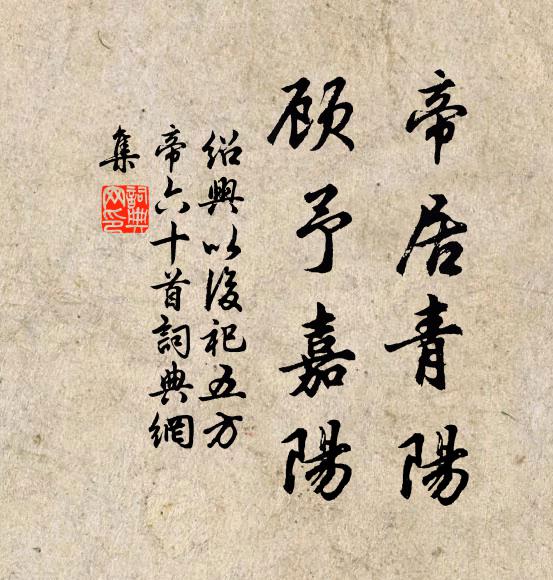 帝居青陽
顾予嘉陽
绍興以後祀五方
帝六十首詞典網
集
詞典网印